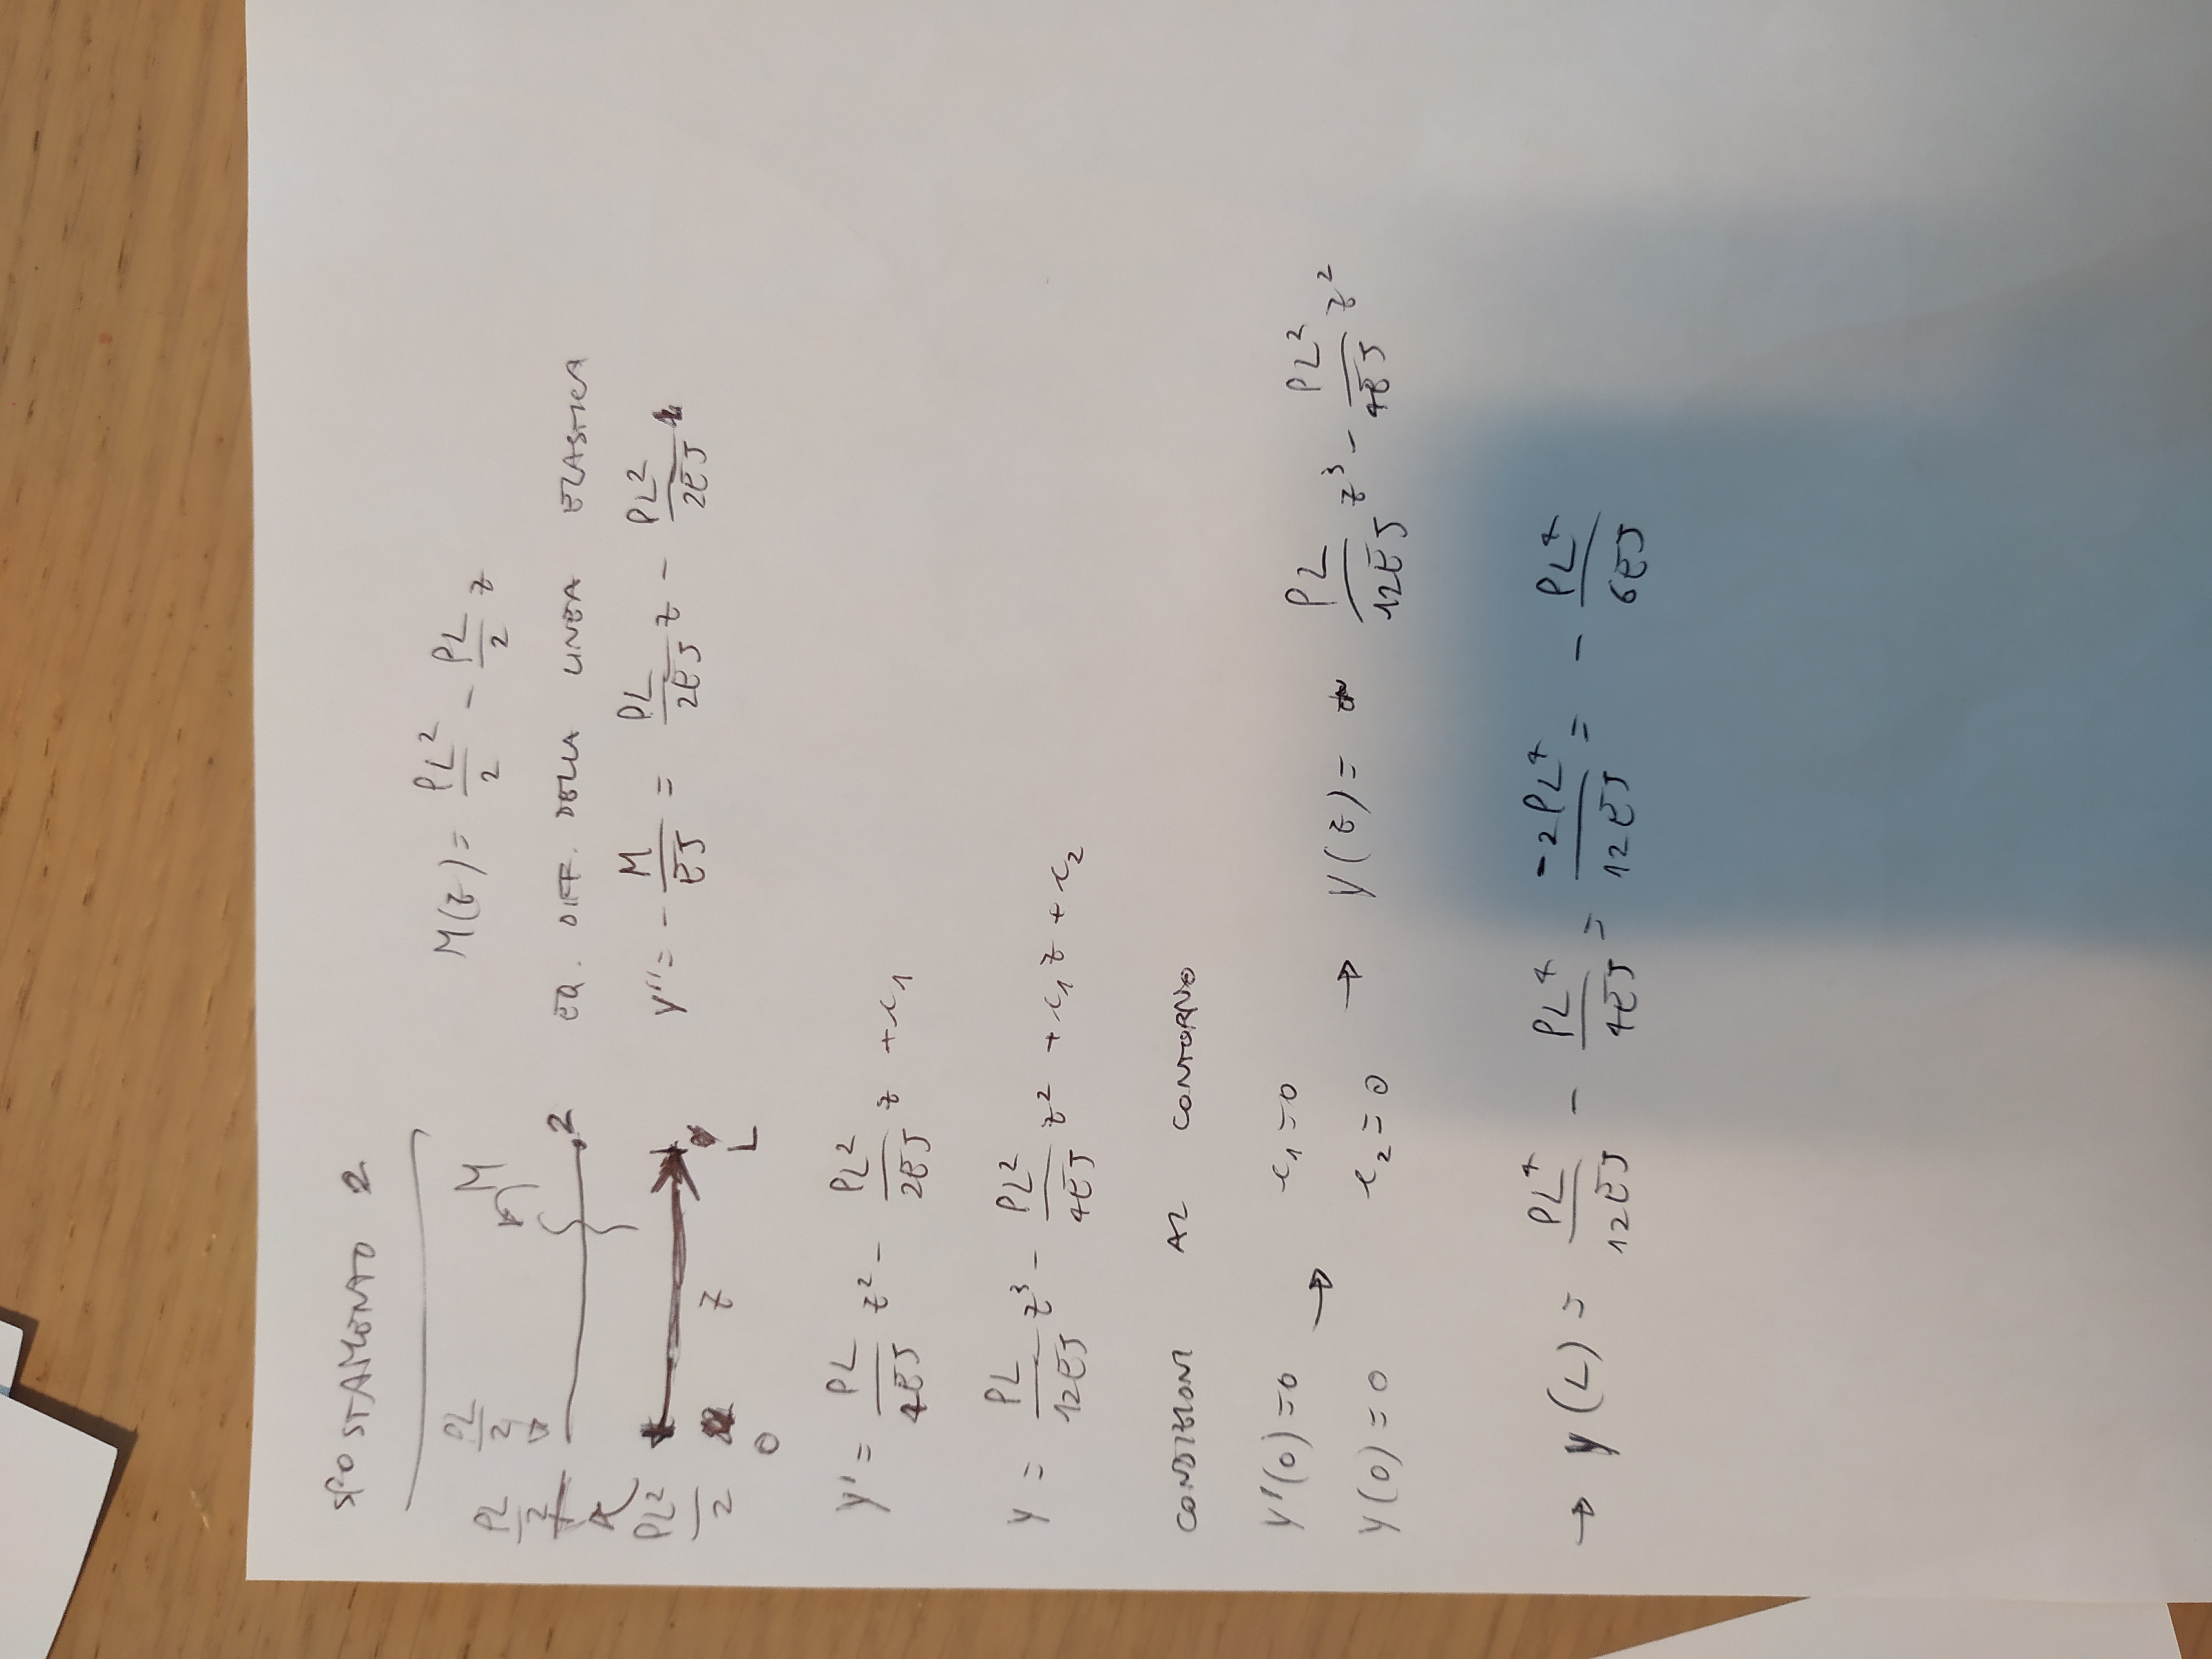 SPOSTAMENTO 2
PL/2 PL/2 M
2
PL²/2 0 z L
M(z) = PL²/2 - PL/2 z
EQ. DIFF. DELLA LINEA ELASTICA
y'' = - M/EJ = PL/2EJ z - PL²/2EJ
y' = PL/4EJ z² - PL²/2EJ z + c₁
y = PL/12EJ z³ - PL²/4EJ z² + c₁ z + c₂
CONDIZIONI AL CONTORNO
y'(0) = 0 → c₁ = 0
y(0) = 0 c₂ = 0 → y(z) = PL/12EJ z³ - PL²/4EJ z²
→ y(L) = PL⁴/12EJ - PL⁴/4EJ = -2PL⁴/12EJ = - PL⁴/6EJ